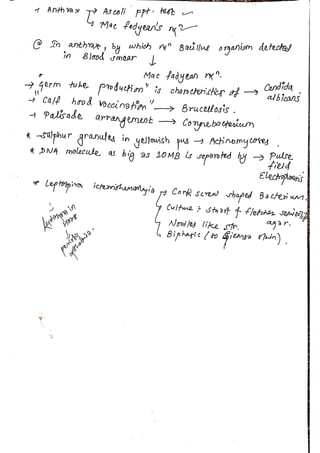 → Anthrax → Ascoli ppt. test
→ Mac fadyean's rxn
@ In anthrax, by which rxn Bacillus organism detected
in Blood smear
↓
Mac fadyean rxn.
→ "Germ tube production" is characteristics of → Candida
albicans
→ Calf hood vaccination → Brucellosis.
→ Palisade arrangement → Corynebacterium
* Sulphur granules in yellowish pus → Actinomycores
* DNA molecule as big as 10MB is separated by → Pulse
field
Electrophoresis
* Leptospira icterohaemorrhagia → Cork screw shaped Bacterium.
Culture : Stuart & Fletcher semisolid
agar.
Needles like str.
Biphasic (to Giemsa stain).
Leptospira in
horse
↓
periodic